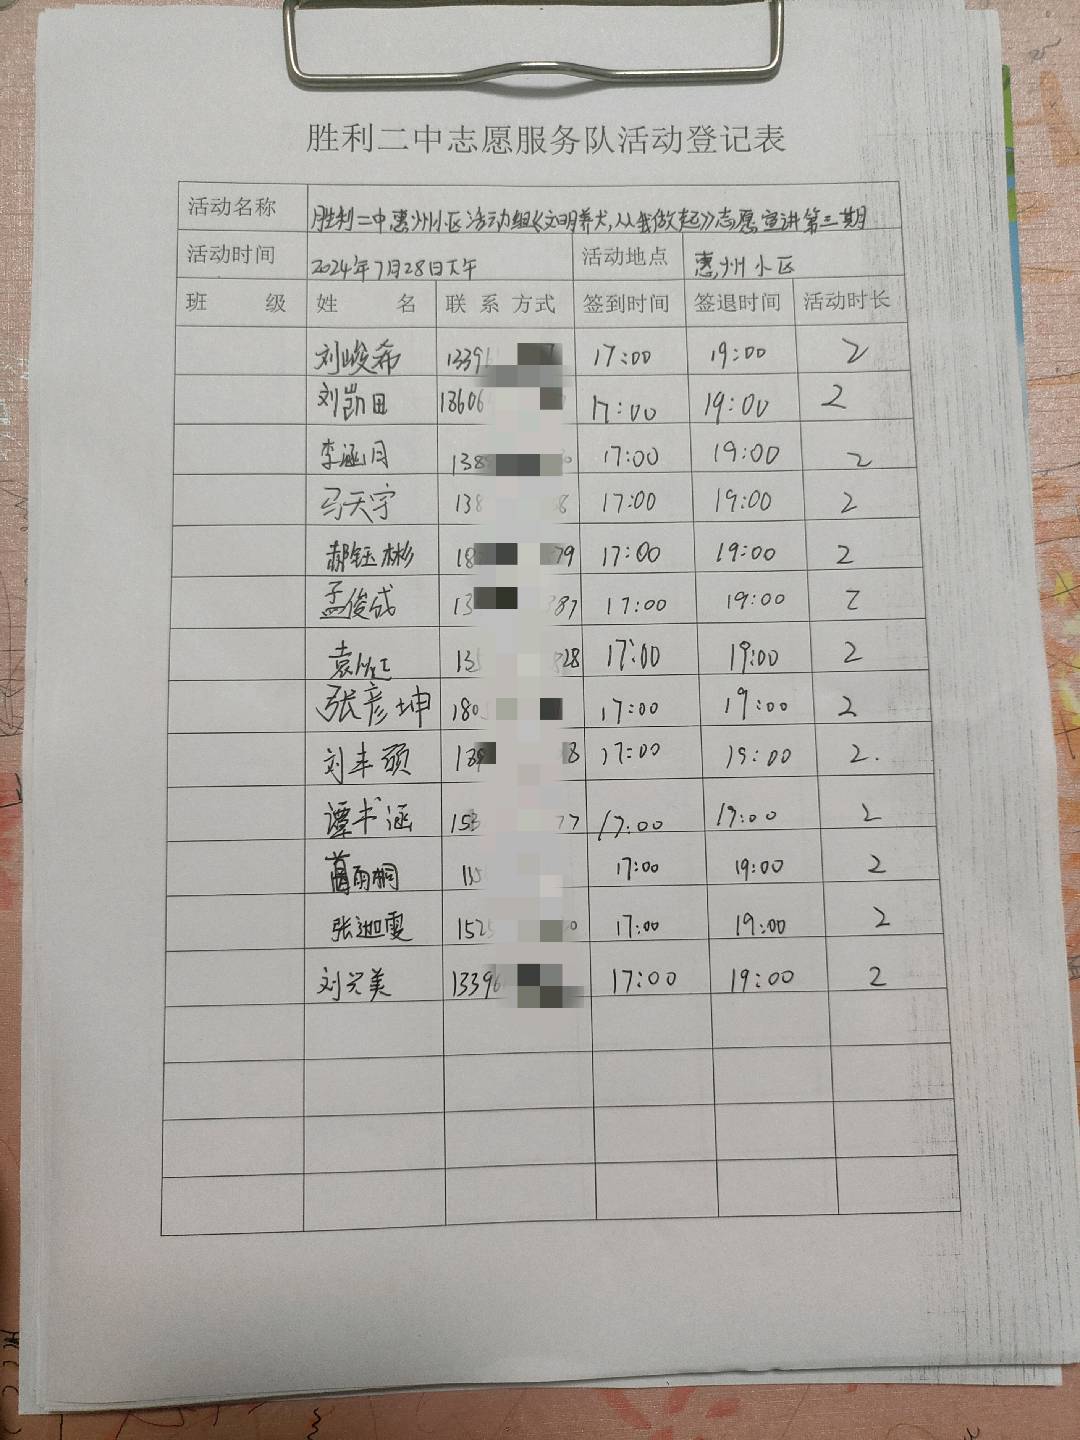 胜利二中志愿服务队活动登记表
活动名称 胜利二中惠州小区活动组《文明养犬,从我做起》志愿宣讲第三期
活动时间 2024年7月28日下午 活动地点 惠州小区
班 级 姓 名 联 系 方式 签到时间 签退时间 活动时长
刘峻希 1339 17:00 19:00 2
刘凯田 18606 17:00 19:00 2
李涵月 138 17:00 19:00 2
马天宇 138 8 17:00 19:00 2
郝钰彬 18 79 17:00 19:00 2
孟俊成 13 387 17:00 19:00 2
袁 13 828 17:00 19:00 2
张彦坤 180 17:00 19:00 2
刘丰硕 18 8 17:00 19:00 2.
谭书涵 153 77 17:00 17:00 2
雨桐 17:00 19:00 2
张迦雯 152 0 17:00 19:00 2
刘兴美 13396 17:00 19:00 2